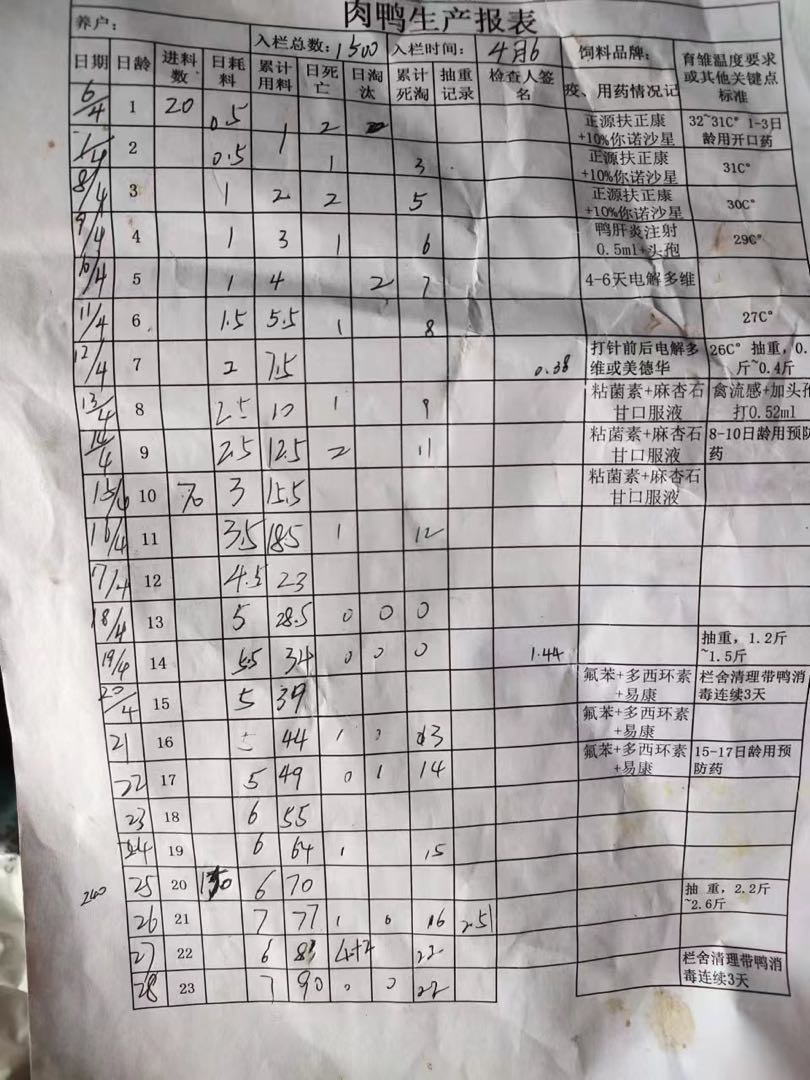 肉鸭生产报表
养户: 入栏总数: 1500 入栏时间: 4月6 饲料品牌: 育雏温度要求或其他关键点标准
日期 日龄 进料数 日耗料 累计用料 日死亡 日淘汰 累计死淘 抽重记录 检查人签名 疫、用药情况记
6/4 1 20 0.5 2 正源扶正康+10%你诺沙星 32~31C° 1-3日龄用开口药
2 0.5 1 1 3 正源扶正康+10%你诺沙星 31C°
8/4 3 1 2 2 5 正源扶正康+10%你诺沙星 30C°
9/4 4 1 3 1 6 鸭肝炎注射0.5ml+头孢 29C°
10/4 5 1 4 2 7 4-6天电解多维
11/4 6 1.5 5.5 1 8 27C°
12/4 7 2 7.5 0.38 打针前后电解多维或美德华 26C° 抽重，0.斤~0.4斤
13/4 8 2.5 10 1 9 粘菌素+麻杏石甘口服液 禽流感+加头孢打0.52ml
14/4 9 2.5 12.5 2 11 粘菌素+麻杏石甘口服液 8-10日龄用预防药
10 3 15.5 粘菌素+麻杏石甘口服液
11 3.5 18.5 1 12
12 4.5 23
18/4 13 5 28.5 0 0 0
19/4 14 5.5 34 0 0 0 1.44 抽重，1.2斤~1.5斤
20/4 15 5 39 氟苯+多西环素+易康 栏舍清理带鸭消毒连续3天
21 16 5 44 1 0 13 氟苯+多西环素+易康
22 17 5 49 0 1 14 氟苯+多西环素+易康 15-17日龄用预防药
23 18 6 55
24 19 6 64 1 15
240 25 20 6 70 抽 重，2.2斤~2.6斤
26 21 7 77 1 0 16 2.51
27 22 6 83 4+2 22
28 23 7 90 0 0 22 栏舍清理带鸭消毒连续3天